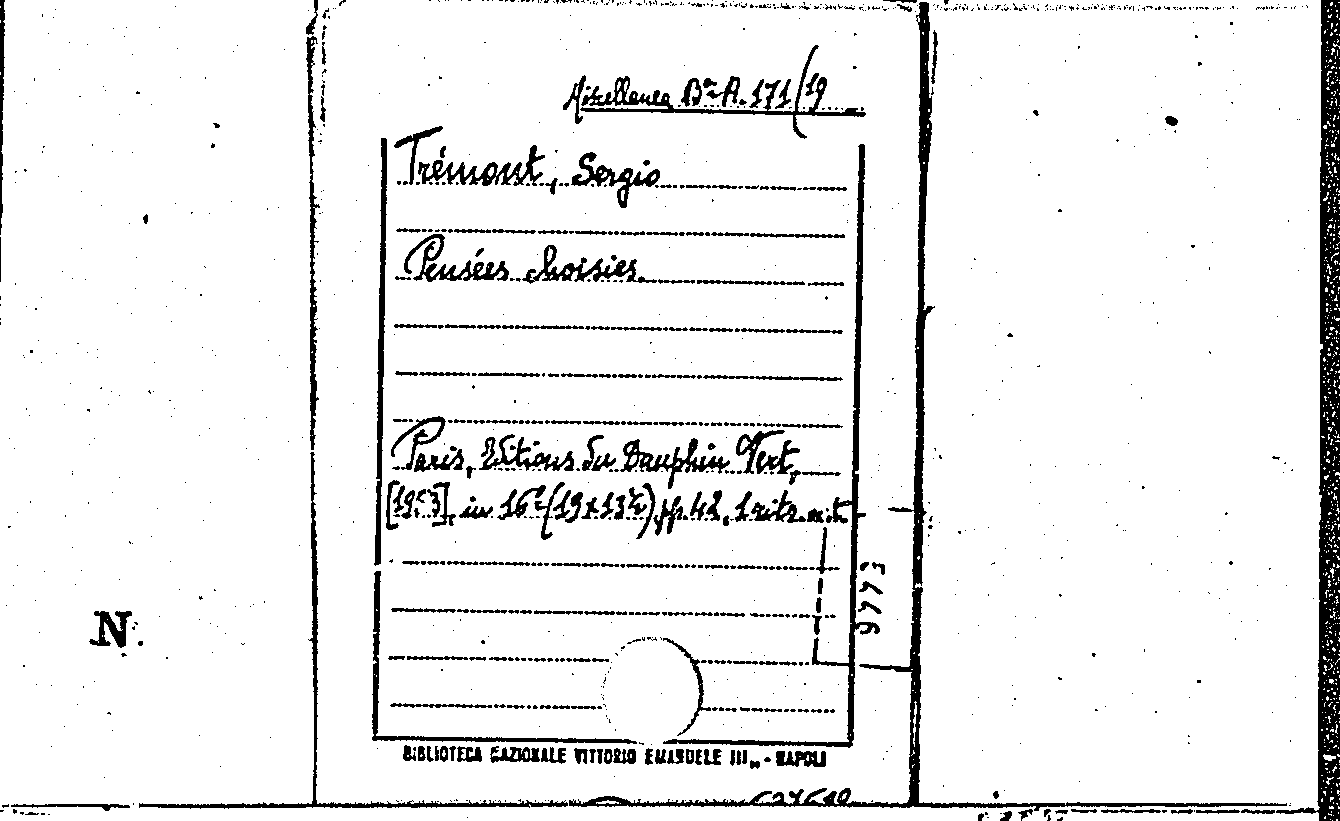 Miscellanea Bª A. 171/19
Trémont, Sergio
Pensées choisies.
Paris, Editions du Dauphin Vert,
[1953], in 16º (19x13½) pp. 42, 1 ritr. n.t.
9773
N.
BIBLIOTECA NAZIONALE VITTORIO EMANUELE III„ - NAPOLI